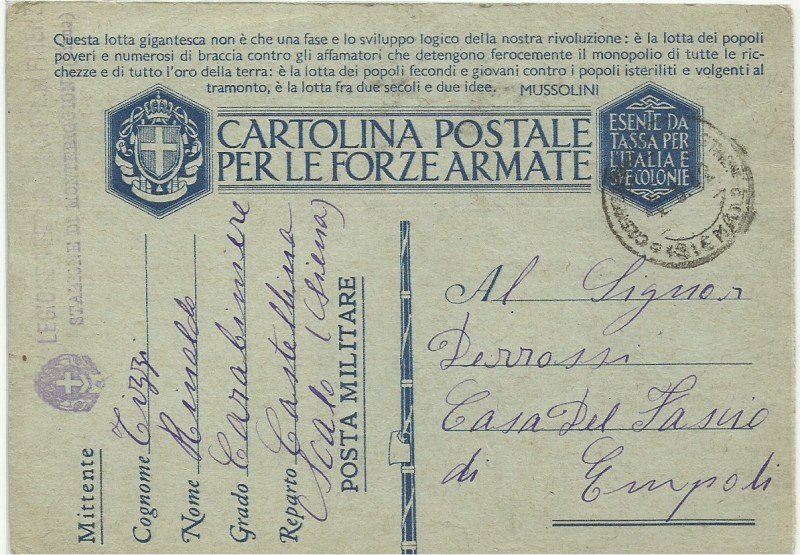 Questa lotta gigantesca non è che una fase e lo sviluppo logico della nostra rivoluzione: è la lotta dei popoli
poveri e numerosi di braccia contro gli affamatori che detengono ferocemente il monopolio di tutte le ric-
chezze e di tutto l'oro della terra: è la lotta dei popoli fecondi e giovani contro i popoli isteriliti e volgenti al
tramonto, è la lotta fra due secoli e due idee. MUSSOLINI
CARTOLINA POSTALE
PER LE FORZE ARMATE
ESENTE DA
TASSA PER
L'ITALIA E
LE COLONIE
LEGIONE
STAZIONE DI
Mittente
Cognome Tizzi
Nome Rinaldo
Grado Carabiniere
Reparto Castellina
Scalo (Siena)
POSTA MILITARE
Al Signor
Derrossi
Casa Del Fascio
di Empoli